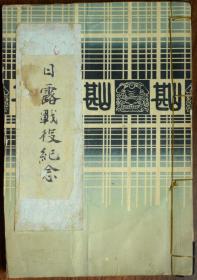 日露戰役紀念